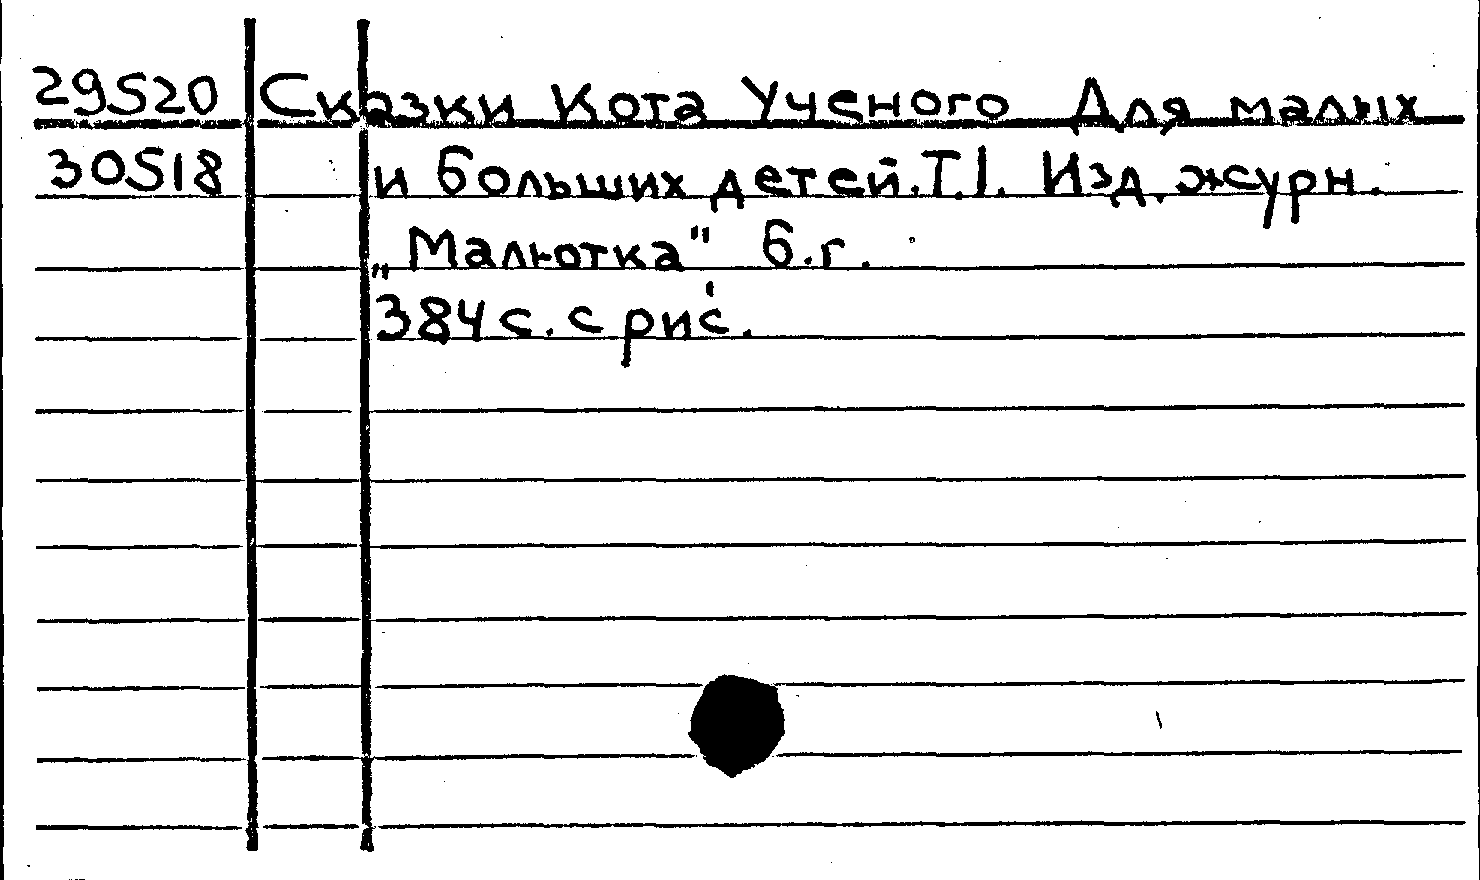 29520 Сказки Кота Ученого Для малых
30518 и больших детей. Т.1. Изд. журн.
„Малютка" б.г.
384 с. с рис.